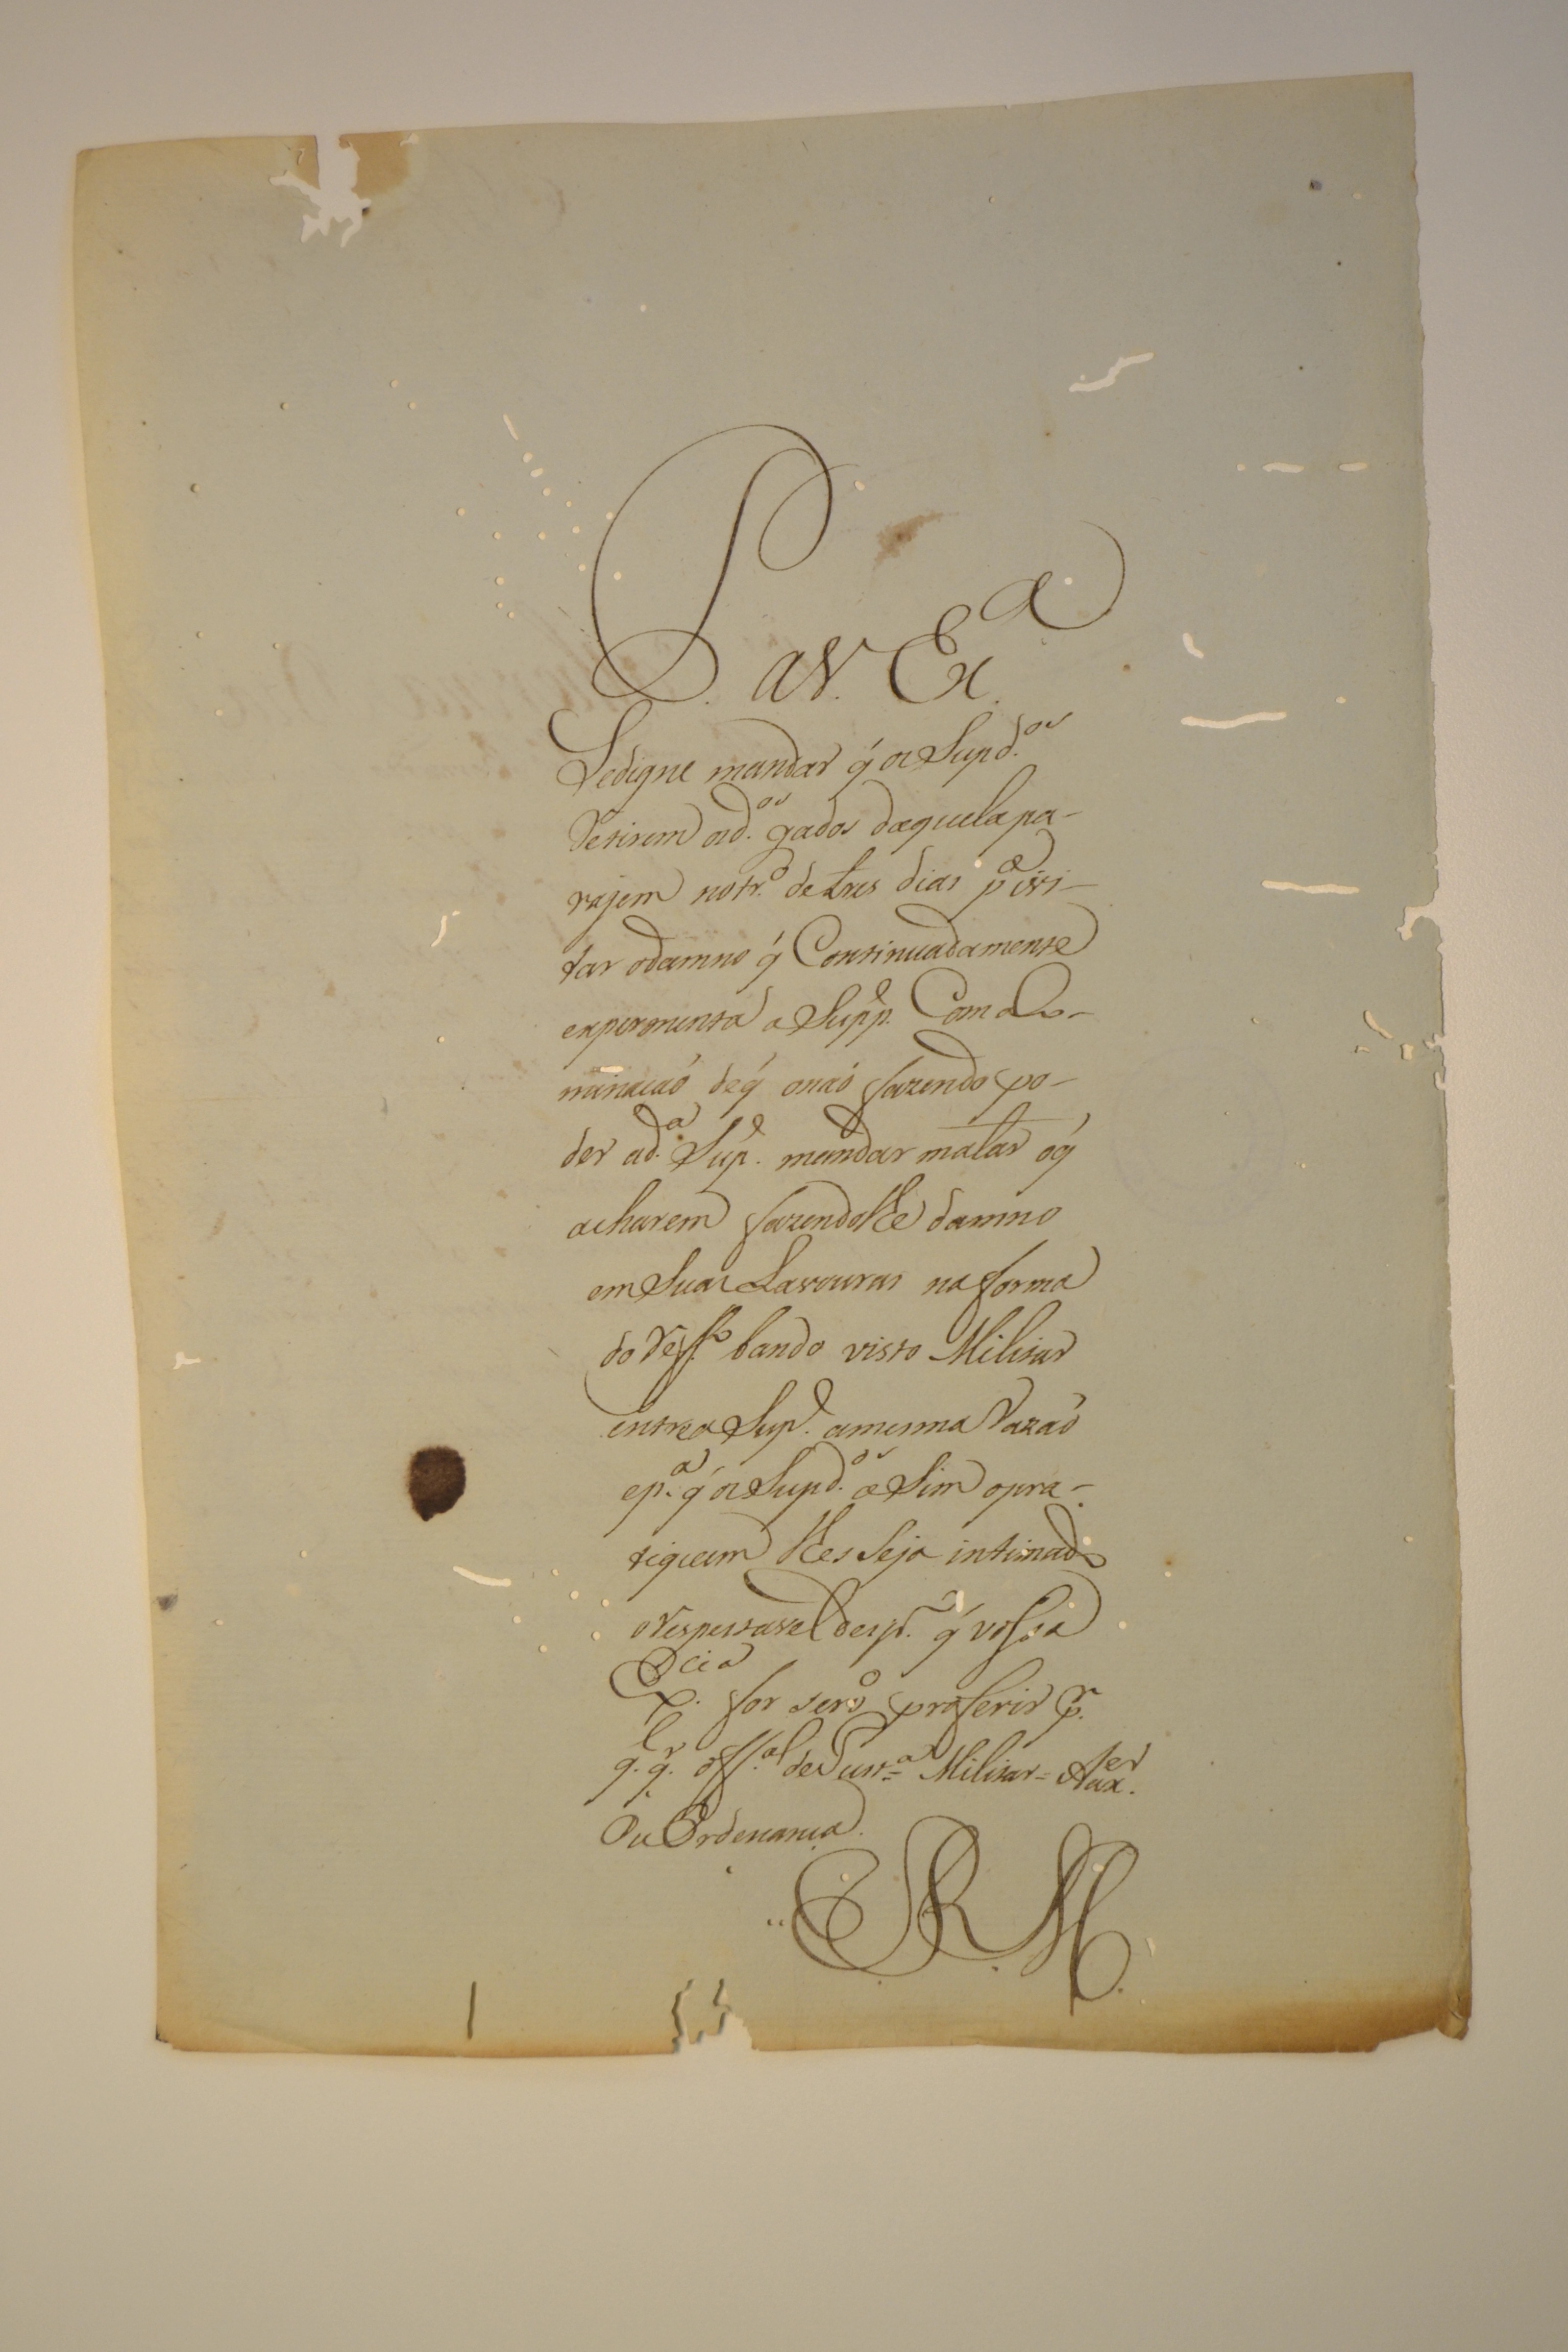 P. a V. Exª
Sedigne mandar q́ os Supd.os
Retirem os d.os gados daquela pa-
rajem no tr.º de tres dias p.ª ivi-
tar o damno q́ Continuadamente
experimenta a Supp.e Com a Co-
minacaó de q́ o naó fazendo po-
der a d.ª Sup.e mandar matar o q́
acharem fazendo lhe damno
em Suas Lavouras na forma
do Reff.º bando visto Militar
entre a Sup.e a mesma Razaó
e p.ª q́ os Supd.os a Sim o pra-
tiquem lhes Seja intimado
o Respeitavel desp.º q́ vossa
Ex.cia for serv.º proferir p.r
q.l q.r off.al de Just.ª Militar = Aux.er
Ou Ordenança.
E R M.